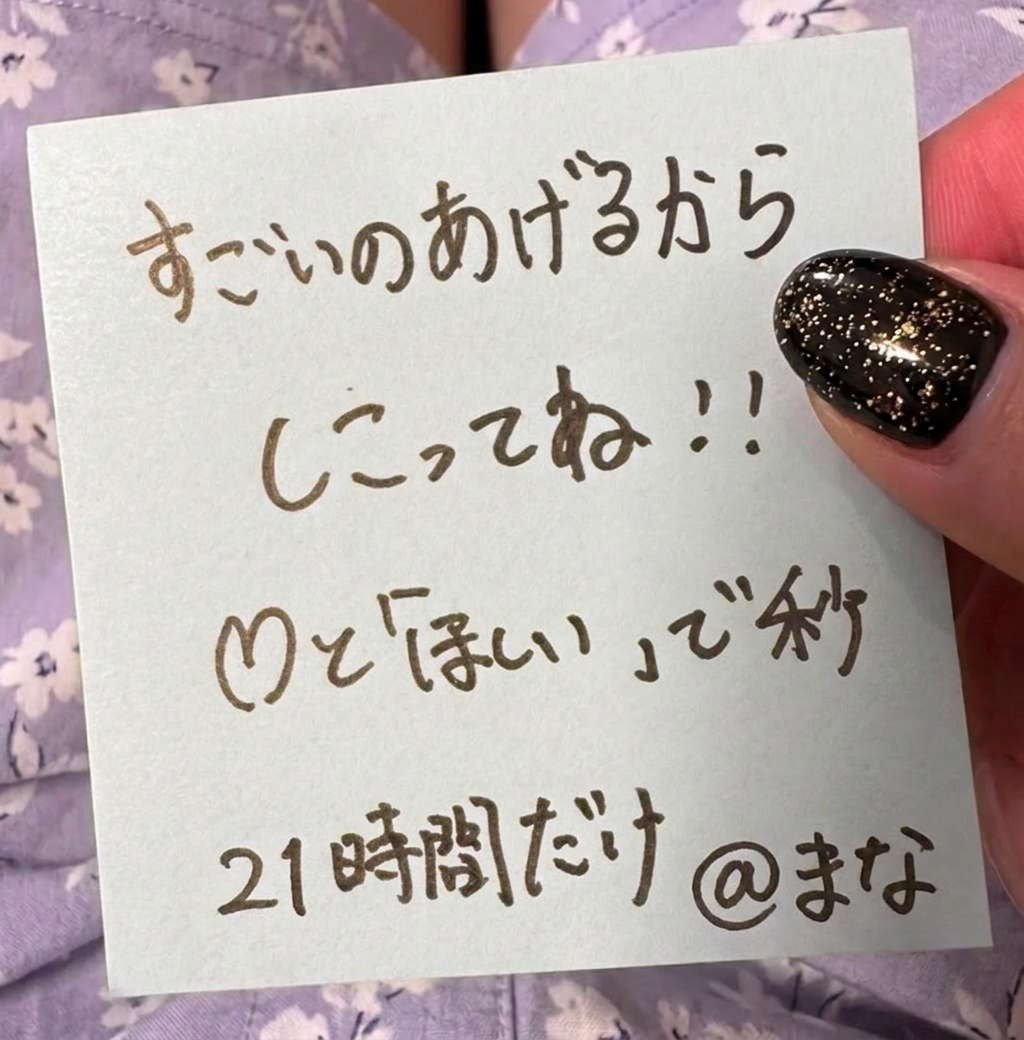 すごいのあげるから
しこってね!!
♡と「ほしい」で秒
21時間だけ @まな